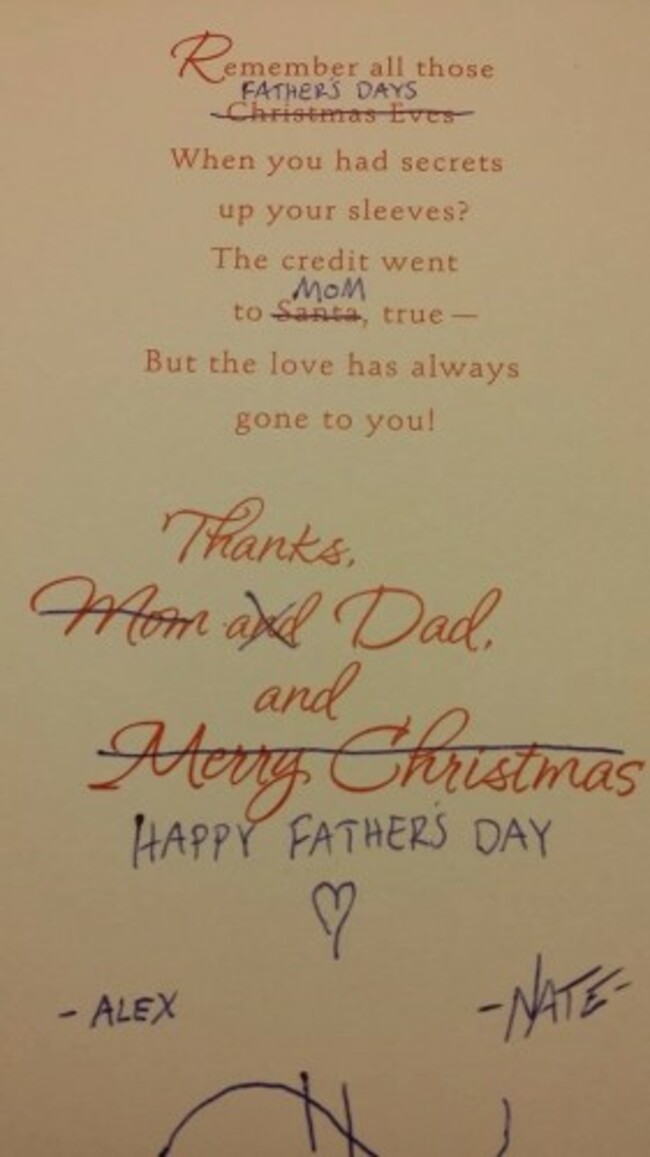 Remember all those
FATHER'S DAYS
Christmas Eves
When you had secrets
up your sleeves?
The credit went
MOM
to Santa, true —
But the love has always
gone to you!
Thanks,
Mom and Dad,
and
Merry Christmas
HAPPY FATHER'S DAY
- ALEX
-NATE-